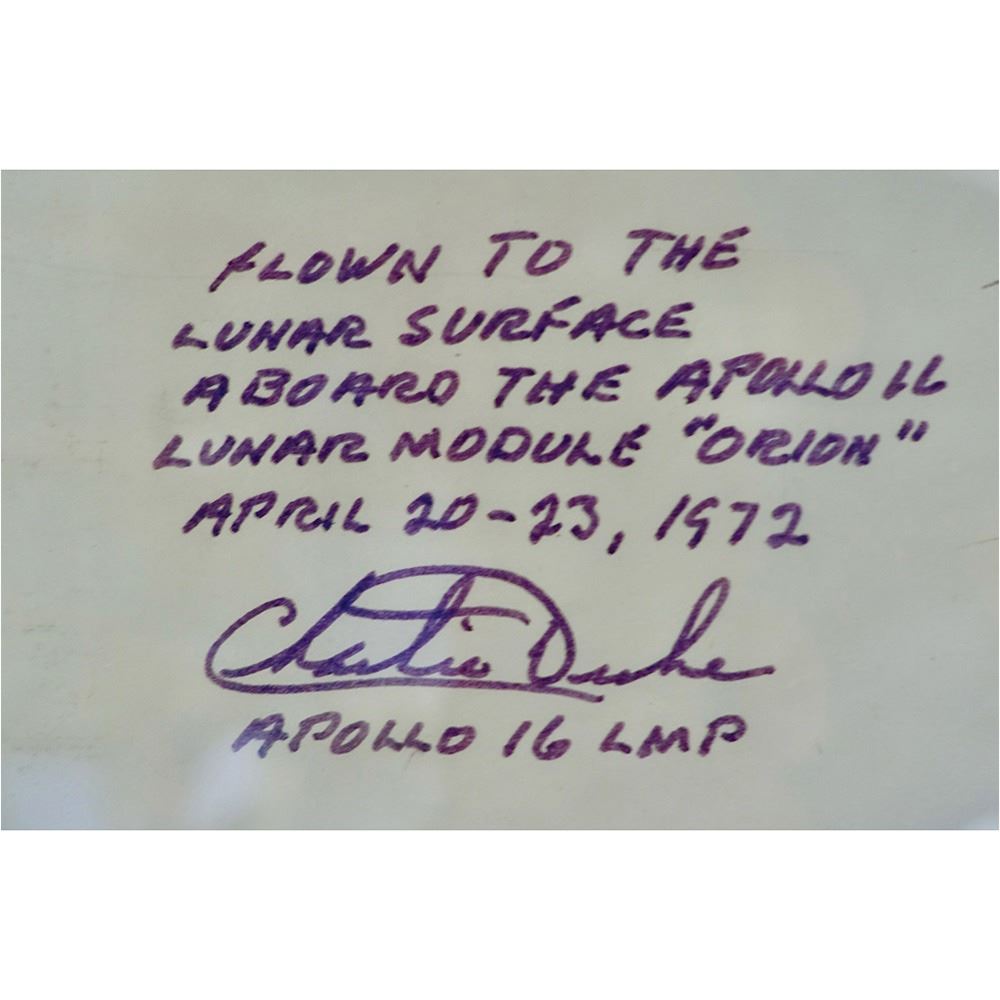 FLOWN TO THE
LUNAR SURFACE
ABOARD THE APOLLO 16
LUNAR MODULE "ORION"
APRIL 20-23, 1972
Charlie Duke
APOLLO 16 LMP